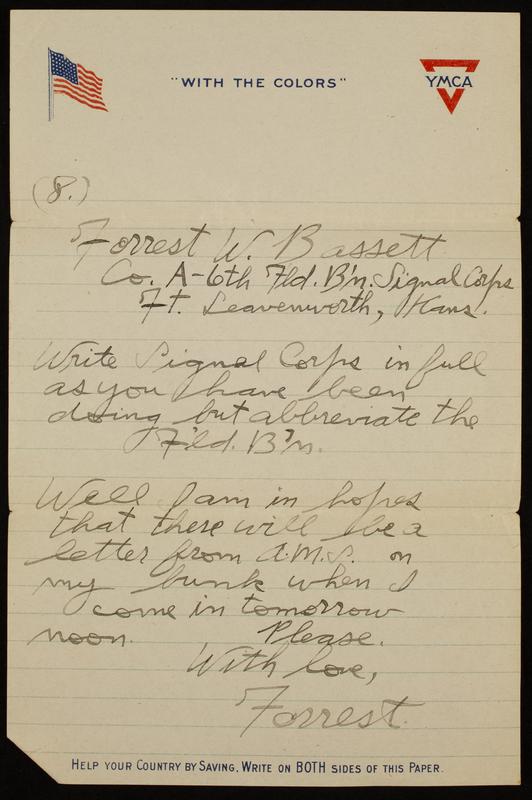 "WITH THE COLORS"
YMCA
(8.)
Forrest W. Bassett
Co. A-6th Fld. B'n. Signal Corps
Ft. Leavenworth, Kans.
Write Signal Corps in full
as you have been
doing but abbreviate the
F'ld. B'n.
Well I am in hopes
that there will be a
letter from A.M.S. on
my bunk when I
come in tomorrow
noon. Please.
With love,
Forrest.
HELP YOUR COUNTRY BY SAVING. WRITE ON BOTH SIDES OF THIS PAPER.